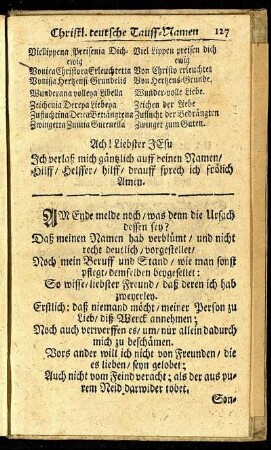 Christl. teutsche Tauff-Namen 127
Vielippena Preisenia Dich- Viel Lippen preisen dich
ewig ewig
Vonica Christora Erleuchtetta Von Christo erleuchtet
Vonisa Hertzensi Grundelis Von Hertzens-Grunde.
Wunderana vollega Libella Wunder-volle Liebe.
Zeichenia Derera Liebeya Zeichen der Liebe
Zufluchtina Derea Beträngtena Zuflucht der Bedrängten
Zwingetta Zuinia Gutenella Zwinger zum Guten.
Ach! Liebster JEsu
Jch verlaß mich gäntzlich auff deinen Namen/
Hilff/ Helffer/ hilff/ drauff sprech ich frölich
Amen.
AM Ende melde noch/ was denn die Ursach
dessen sey?
Daß meinen Namen hab verblümt/ und nicht
recht deutlich/ vorgestellet/
Noch mein Beruff und Stand/ wie man sonst
pflegt/ demselben beygesellet:
So wisse/ liebster Freund/ daß deren ich hab
zweyerley.
Erstlich: daß niemand möcht/ meiner Person zu
Lieb/ diß Werck annehmen;
Noch auch verwerffen es/ um/ nur allein dadurch
mich zu beschämen.
Vors ander will ich nicht von Freunden/ die
es lieben/ seyn gelobet;
Auch nicht vom Feind veracht; als der aus pu-
rem Neid darwider tobet.
Son-